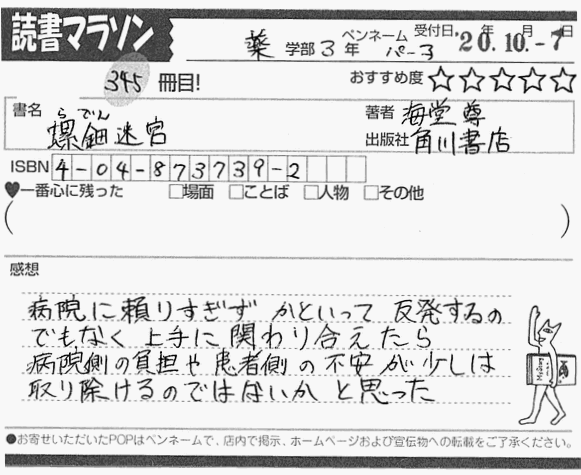 読書マラソン
薬 学部 3 年 ペンネーム パーコ 受付日 '20.10.-7 年 月 日
345 冊目! おすすめ度 ☆☆☆☆☆
書名 螺鈿迷宮 らでん
著者 海堂 尊
出版社 角川書店
ISBN 4-04-873739-2
♥一番心に残った □場面 □ことば □人物 □その他
( )
感想
病院に頼りすぎず かといって 反発するの
でもなく 上手に関わり合えたら
病院側の負担や患者側の不安が少しは
取り除けるのではないか と思った
●お寄せいただいたPOPはペンネームで、店内で掲示、ホームページおよび宣伝物への転載をご了承ください。